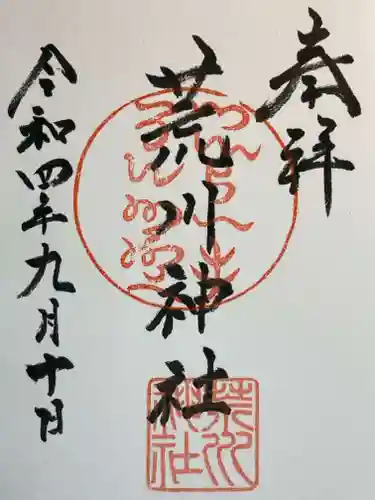 奉拝
荒川神社
令和四年九月十日
荒川
神社